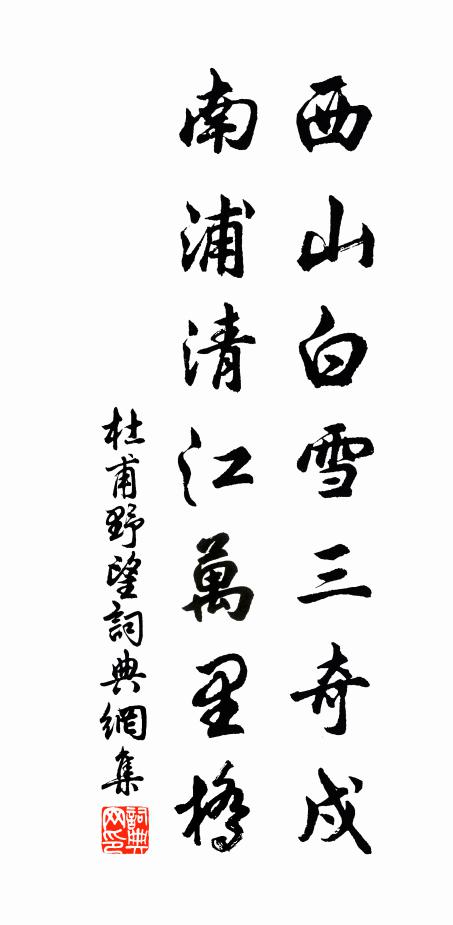 西山白雪三奇戍
南浦清江萬里橋
杜甫野望詞典網集
詞典网印